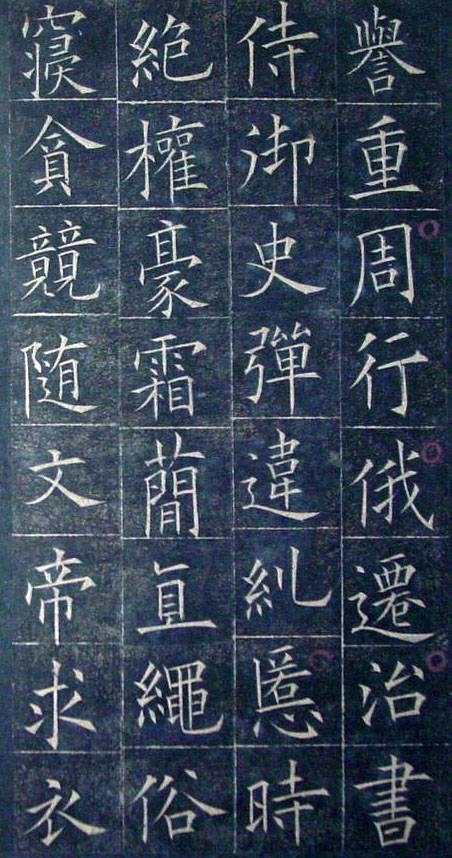 譽重周行俄遷治書
侍御史彈違糺慝時
絶權豪霜簡直繩俗
寢貪競随文帝求衣